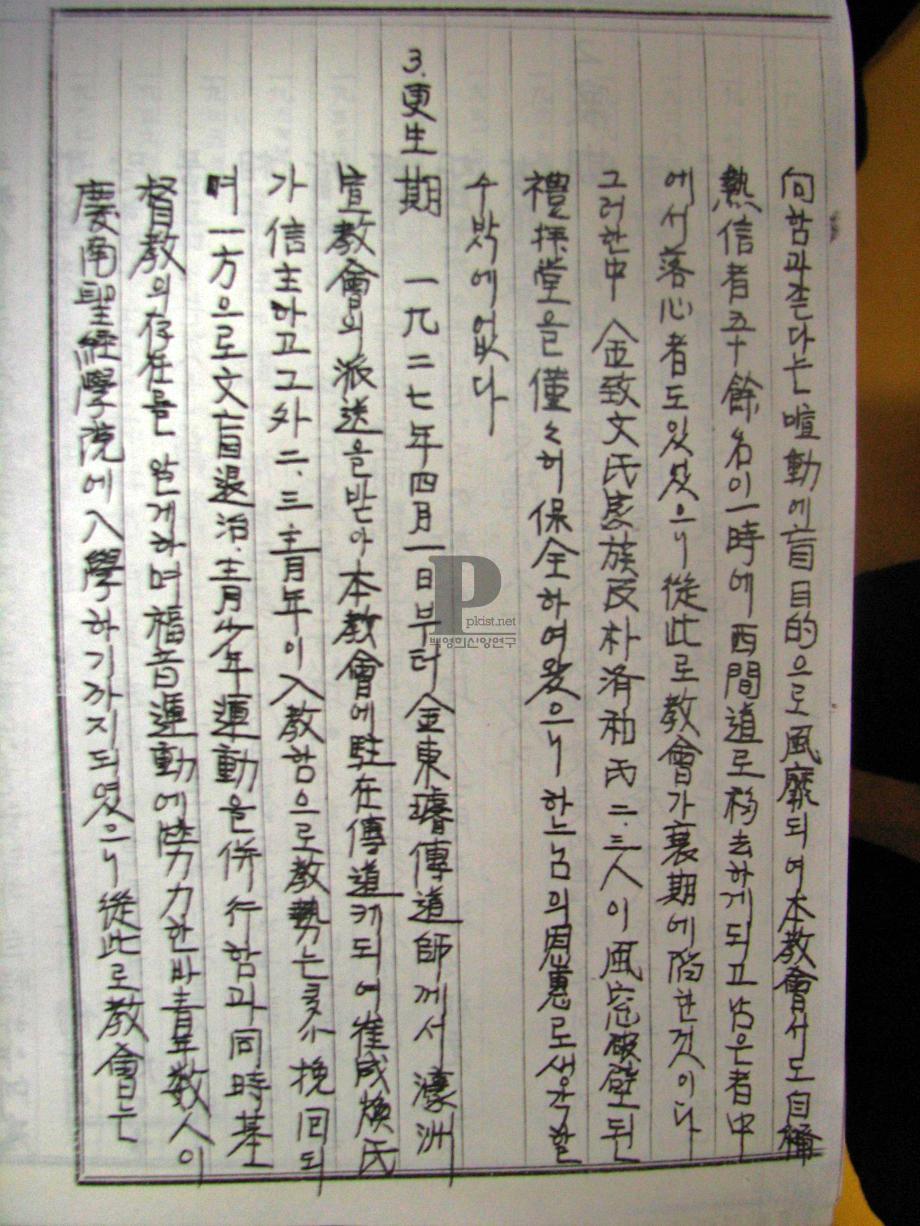 向하과즌다는 喧動에 盲目的으로 風靡되여 本教會서도 自稱
熱信者 五十餘名이 一時에 西間道로 移去하게되고 남은者中
에서 落心者도 있섯으니 從此로 教會가 衰期에 陷한것이다
그러한中 金致文氏家族及 朴済和氏 二.三人이 風窓破壁된
禮拜堂을 僅々히 保全하여왓으니 하느님의 恩惠로 생각할
수밖에 없다
3. 更生期 一九二七年四月一日부터 金東璿傳道師께서 濠洲
宣教會의 派送을 받아 本教會에 駐在傳道케되여 崔成煥氏
가 信主하고 그外 二.三青年이 入教함으로 教勢는 多少 挽回되
며 一方으로 文盲退治.青少年運動을 併行함과 同時 基
督教의 存在를 알게하며 福音運動에 努力한바 青年數人이
慶南聖經學院에 入學하기까지되였으니 從此로 教會는
P
pkist.net
백영희신앙연구